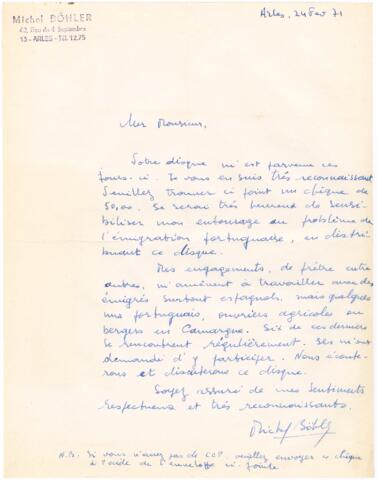 Michel BÖHLER
42, Rue du 4 Septembre
13 - ARLES - Tél. 12.75
Arles, 24 Fev 71
Cher Monsieur,
Votre disque m'est parvenu ces
jours-ci. Je vous en suis très reconnaissant
Veuillez trouver ci joint un chèque de
50,00. Je serai très heureux de sensi-
biliser mon entourage au problème de
l'émigration portuguaire, en distri-
buant ce disque.
Mes engagements, de prêtre entre
autres, m'amènent à travailler avec des
émigrés surtout espagnols, mais quelques
uns portuguais, ouvriers agricoles ou
bergers en Camargue. Six de ces derniers
se rencontrent régulièrement. Ils m'ont
demandé d'y participer. Nous écoute-
rons et discuterons ce disque.
Soyez assuré de mes sentiments
respectueux et très reconnaissants.
Michel Böhler
N.B. Si vous n'avez pas de CCP, veuillez envoyer le chèque
à l'aide de l'enveloppe ci-jointe